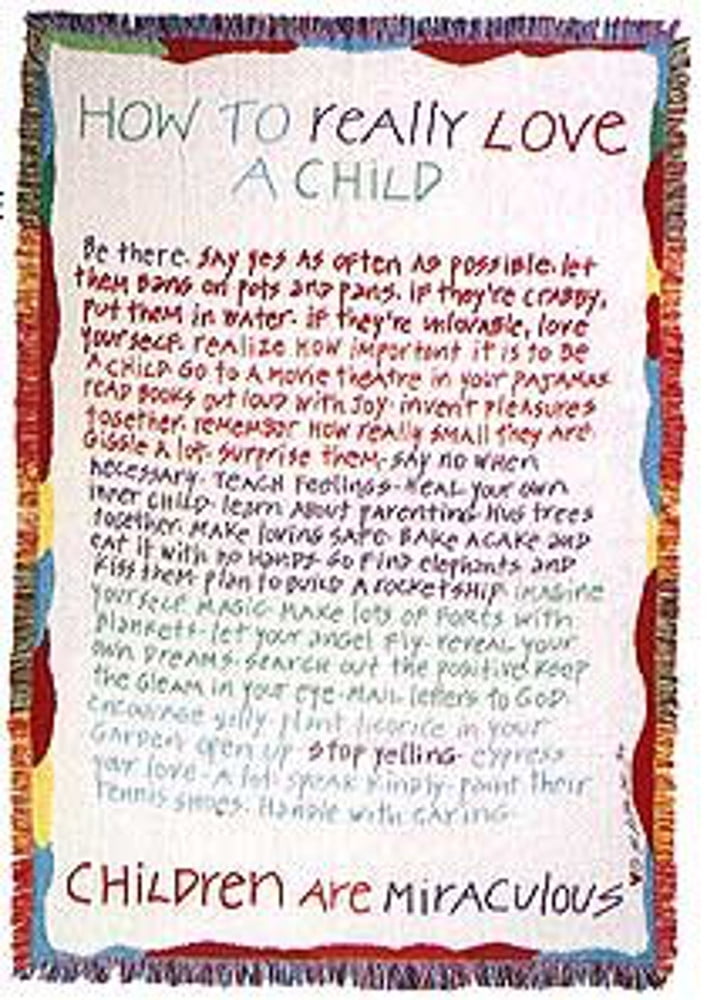 HOW TO reAlly LOVe
A CHiLD
Be there. SAy yes AS often AS possible. let
them BANG on pots and pans. if they're crabby,
put them in water. if they're unlovable, love
yourself. realize how important it is to be
A CHILD. Go to A movie theatre in your PAJAMAS.
reAD BOOKS out loud with Joy. invent pleasures
together. remember how really small they are.
Giggle A lot. surprise them. SAY no when
necessary. TeACH Feelings. HeAL your own
inner CHILD. learn About parenting. Hug trees
together. MAKe loving SAFe. BAKe A CAKe and
eat it with no HANDS. Go find elephants and
kiss them. plan to BUILD A rocketsHip. imagine
yourself MAGIC. MAKe lots of Forts with
Blankets. let your angel Fly. reveal your
own DreAMS. search out the positive. Keep
the GleAM in your eye. MAIL letters to GOD.
encourage silly. plant licorice in your
GArDen. open up. stop yelling. express
your love. A lot. speak kindly. paint their
tennis shoes. Handle with CAring.
CHiLDren Are MirACulous